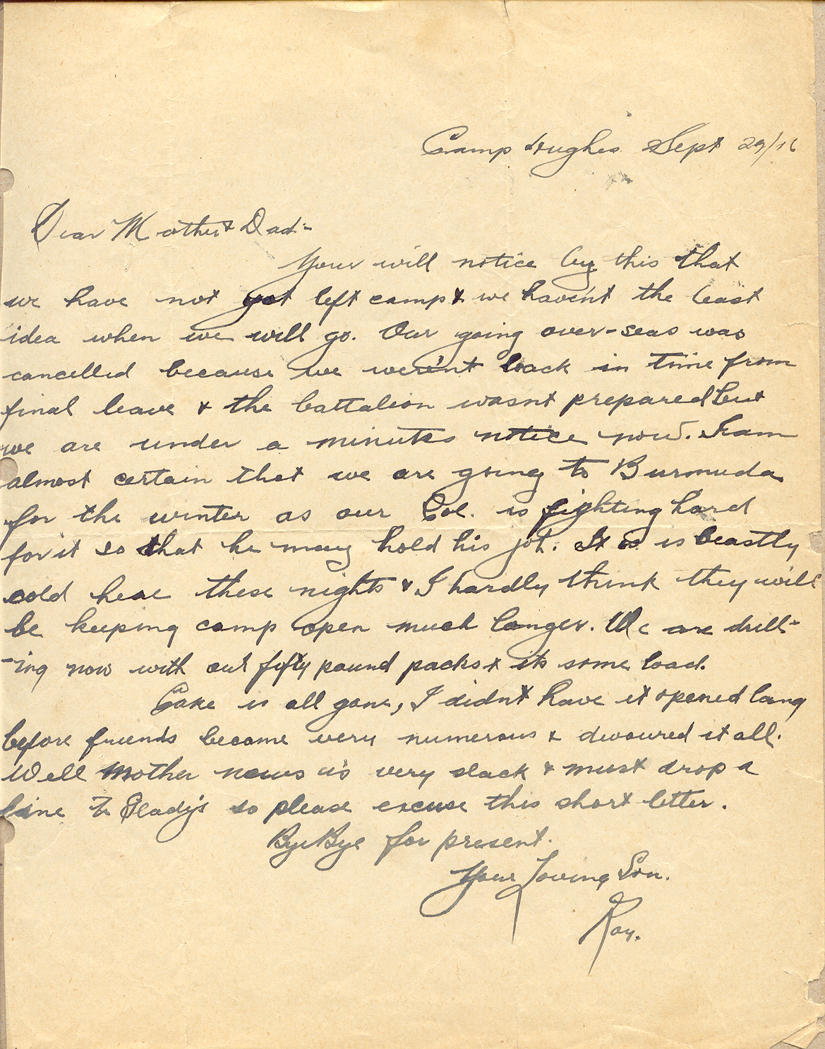 Camp Hughes Sept 29/16
Dear Mother & Dad:-
Your will notice by this that
we have not yet left camp & we havn't the least
idea when we will go. Our going over-seas was
cancelled because we weren't back in time from
final leave & the battalion wasnt prepared but
we are under a minutes notice now. I am
almost certain that we are going to Burmuda
for the winter as our Col. is fighting hard
for it so that he may hold his job. It is is beastly
cold hear these nights & I hardly think they will
be keeping camp open much longer. We are drill-
-ing now with our fifty pound packs & its some load.
Cake is all gone, I didn't have it opened long
before friends became very numerous & divoured it all.
Well Mother news is very slack & must drop a
line to Gladys so please excuse this short letter.
Bye Bye for present.
Your Loving Son.
Roy.